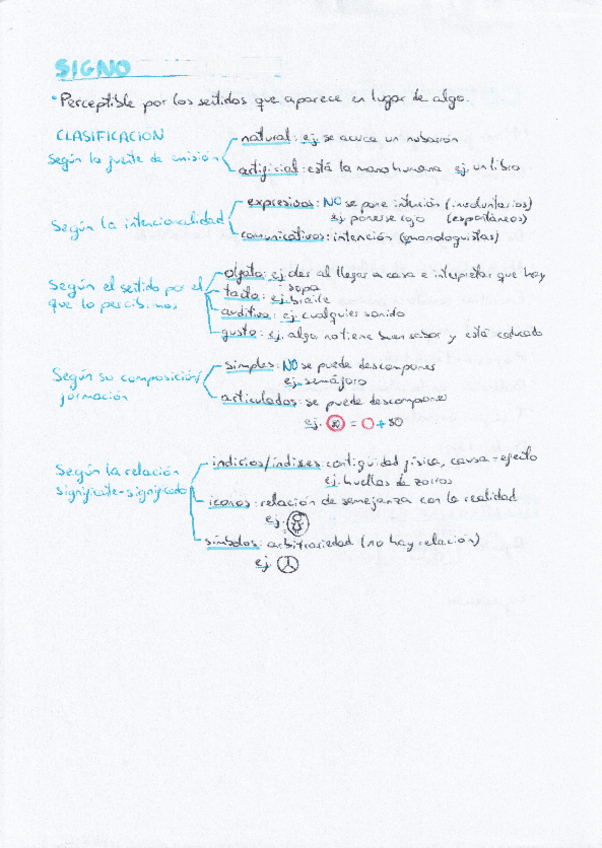 SIGNO
· Perceptible por los sentidos que aparece en lugar de algo.
CLASIFICACIÓN
Según la fuente de emisión
natural: ej. se acerca un nubarrón
artificial: está la mano humana ej. un libro
Según la intencionalidad
expresivos: NO se pone intención (involuntarios)
ej. ponerse rojo (espontáneos)
comunicativos: intención (monologuistas)
Según el sentido por el
que lo percibimos
olfato: ej. oler al llegar a casa e interpretar que hay
sopa
tacto: ej. braile
auditiva: ej. cualquier sonido
gusto: ej. algo no tiene buen sabor y está caducado
Según su composición/
formación
simples: NO se puede descomponer
ej. semáforo
articulados: se puede descomponer
ej. 50 = O + 50
Según la relación
significante-significado
indicios/índices: contigüidad física, causa-efecto
ej. huellas de zorros
iconos: relación de semejanza con la realidad
ej.
símbolos: arbitrariedad (no hay relación)
ej.